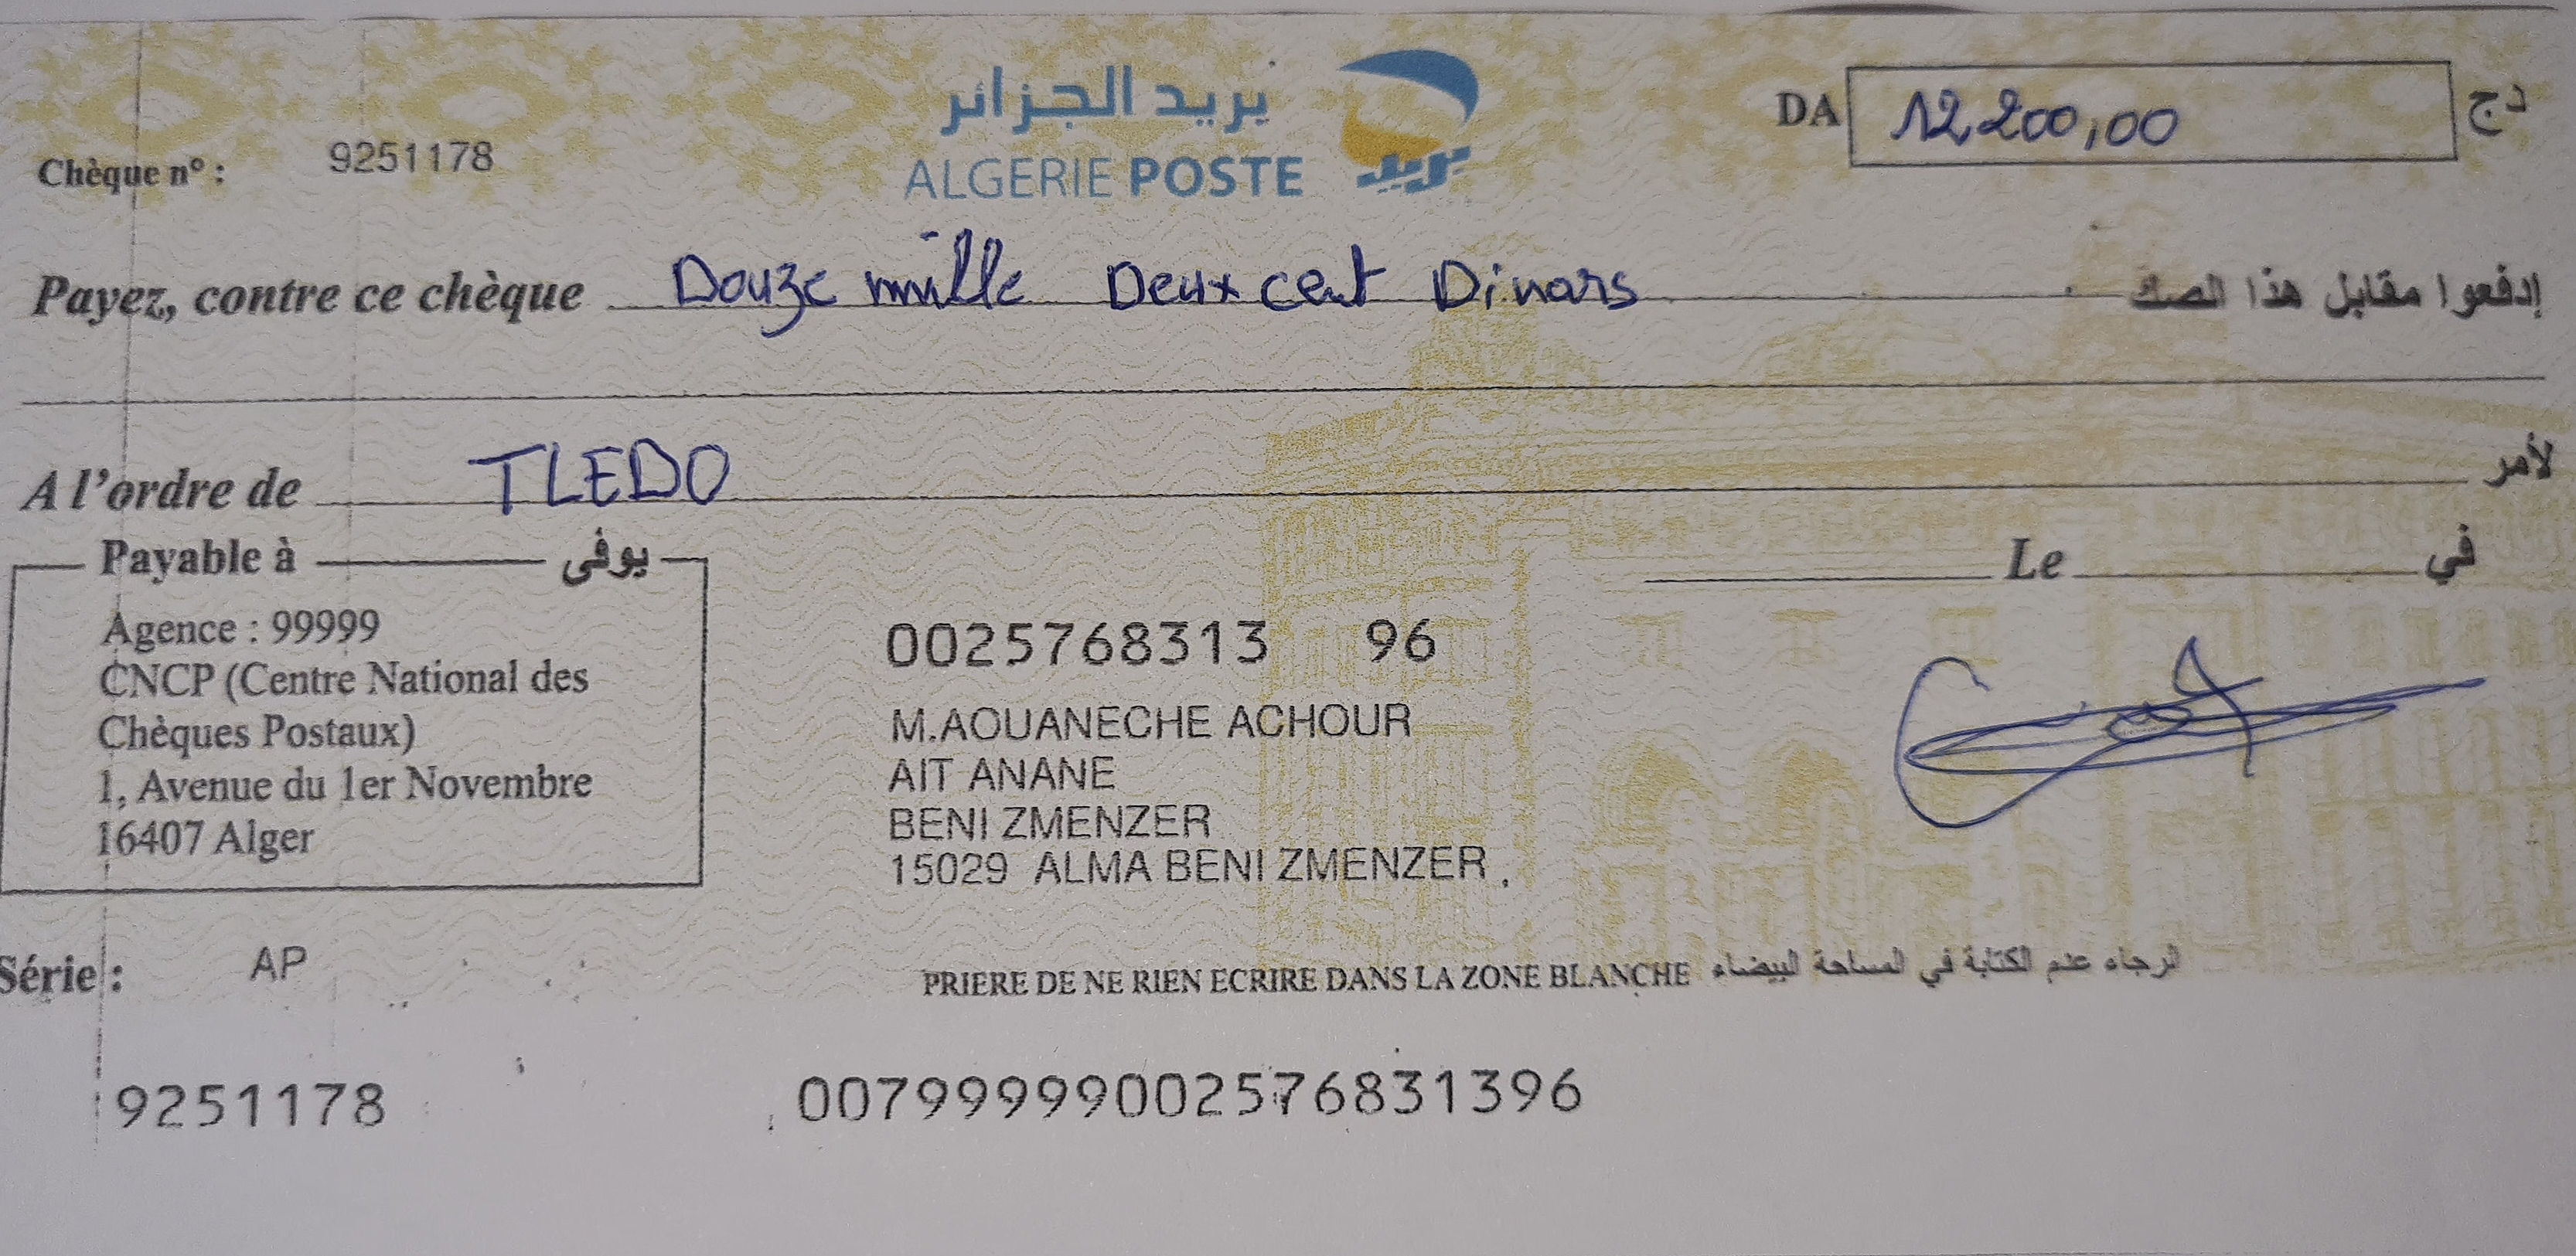 بريد الجزائر
ALGERIE POSTE
بريد
DA 12 200,00 دج
Chèque n° : 9251178
Payez, contre ce chèque Douze mille Deux cent Dinars إدفعوا مقابل هذا الصك
A l'ordre de TLEDO لأمر
Payable à يوفى
Le في
Agence : 99999
CNCP (Centre National des
Chèques Postaux)
1, Avenue du 1er Novembre
16407 Alger
0025768313 96
M.AOUANECHE ACHOUR
AIT ANANE
BENI ZMENZER
15029 ALMA BENI ZMENZER
Série : AP
PRIERE DE NE RIEN ECRIRE DANS LA ZONE BLANCHE الرجاء عدم الكتابة في المساحة البيضاء
9251178 00799999002576831396